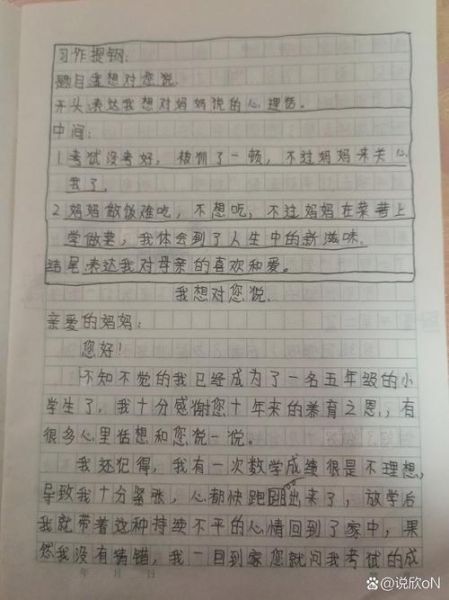 习作提纲:
题目:我想对您说.
开头:表达我想对妈妈说的心理话。
中间:
1.考试没考好,被训了一顿,不过妈妈来关心
我了,
2.妈妈做饭难吃,不想吃,不过妈妈在菜谱上
学做菜,我体会到了人生中的新滋味.
结尾:表达我对母亲的喜欢和爱。
我想对您说.
亲爱的妈妈:
您好!
不知不觉的我已经成为了一名五年级的小
学生了,我十分感谢您十年来的养育之恩,有
很多心里话想和您说一说。
我还记得,我有一次数学成绩很是不理想,
导致我十分紧张,心都快跑跳出来了,放学后
我就带着这种持续不平的心情回到了家中,果
然我没有猜错,我一回到家您就问我考试的成
年 月 日
@说欣oN